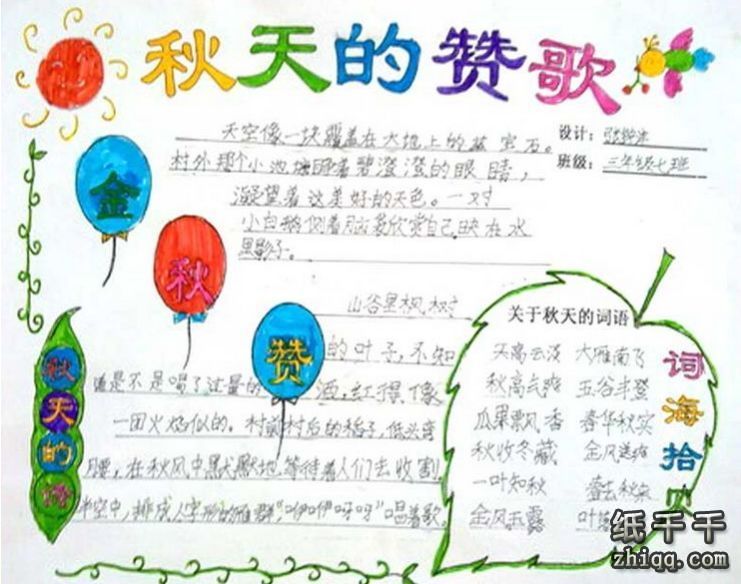 秋天的赞歌
天空像一块覆盖在大地上的蓝宝石。
设计：
村外那个小池塘睁着碧澄澄的眼睛，
班级：三年级七班
凝望着这美好的天色。一对
小白鹅侧着脑袋欣赏自己映在水
里影子。
金
秋
赞
山谷里枫树
的叶子，不知
道是不是喝了过量的酒，红得像
一团火焰似的。村前村后的稻子，低头弯
腰，在秋风中默默地等待着人们去收割
半空中，排成人字形的雁群，"咿咿呀呀"唱着歌。
秋天的
关于秋天的词语
天高云淡 大雁南飞
秋高气爽 五谷丰登
瓜果飘香 春华秋实
秋收冬藏 金风送爽
一叶知秋 春去秋来
金风玉露 叶
词海拾
纸千千
zhiqq.com